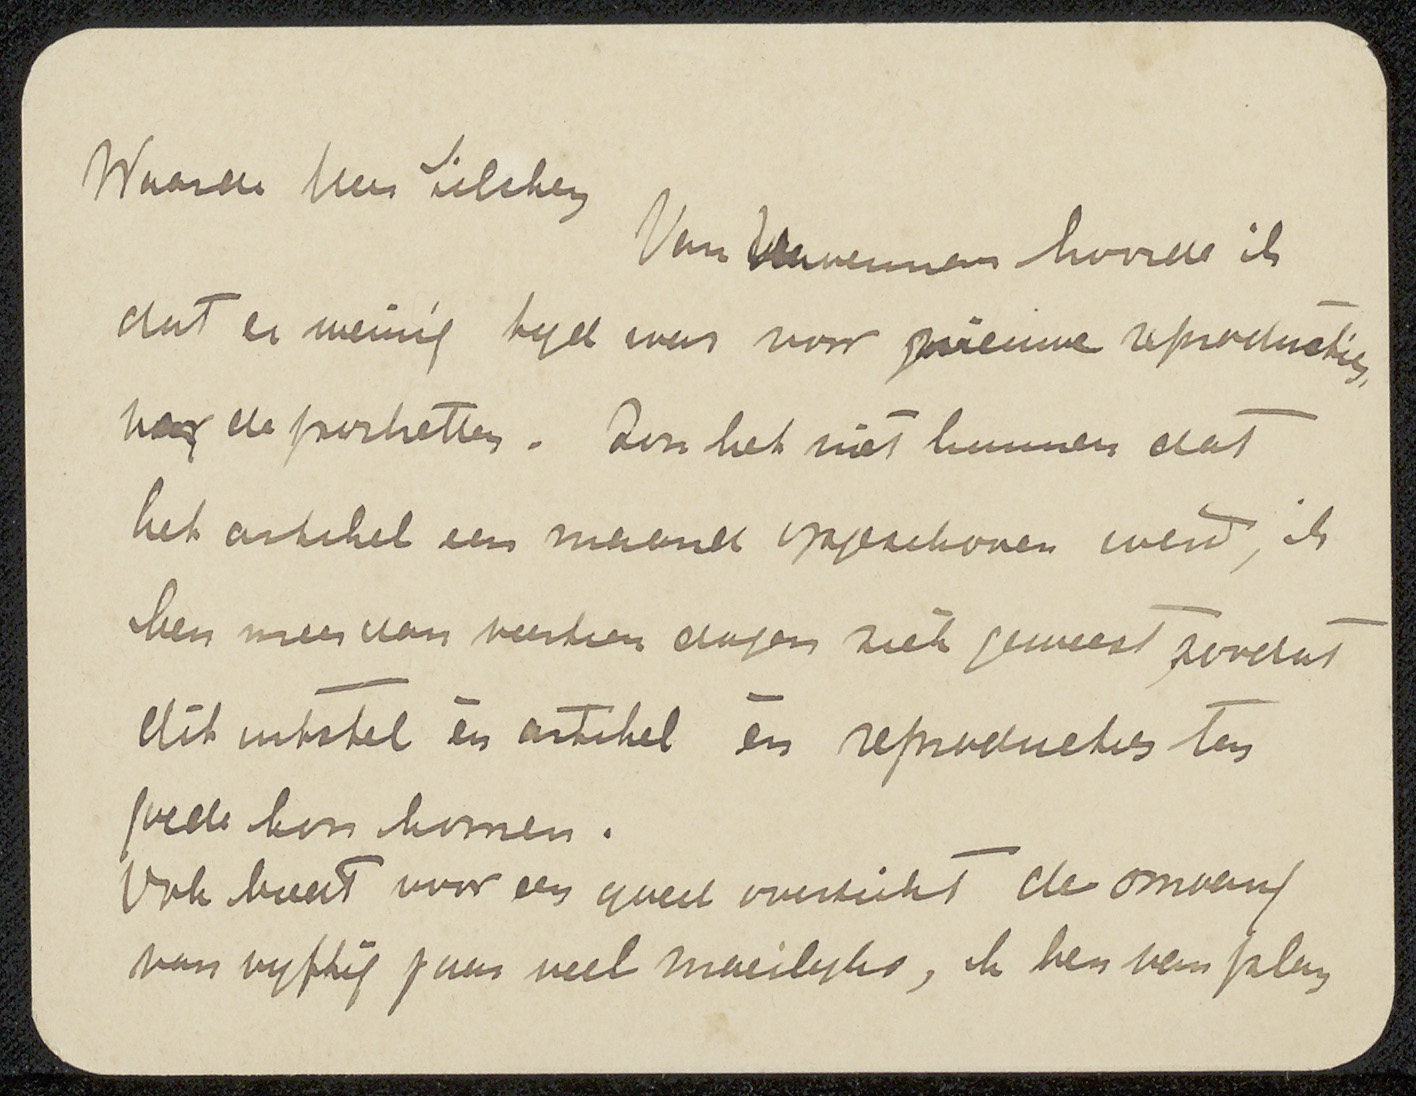 Waarde Heer Zilcken
Van Haverman hoorde ik
dat er weinig tyd was voor nieuwe reproducties,
naar de portretten. Zou het niet kunnen dat
het artikel een maand opgeschoven werd, ik
ben meer dan veertien dagen ziek geweest zoodat
dit uitstel èn artikel èn reproducties ten
goede kon komen.
Ook biedt voor een goed overzicht de omvang
van vyftig jaar veel moeilyks, ik ben van plan